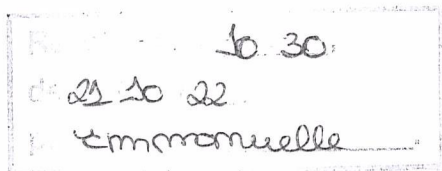 10 30
21 10 22
Emmanuelle